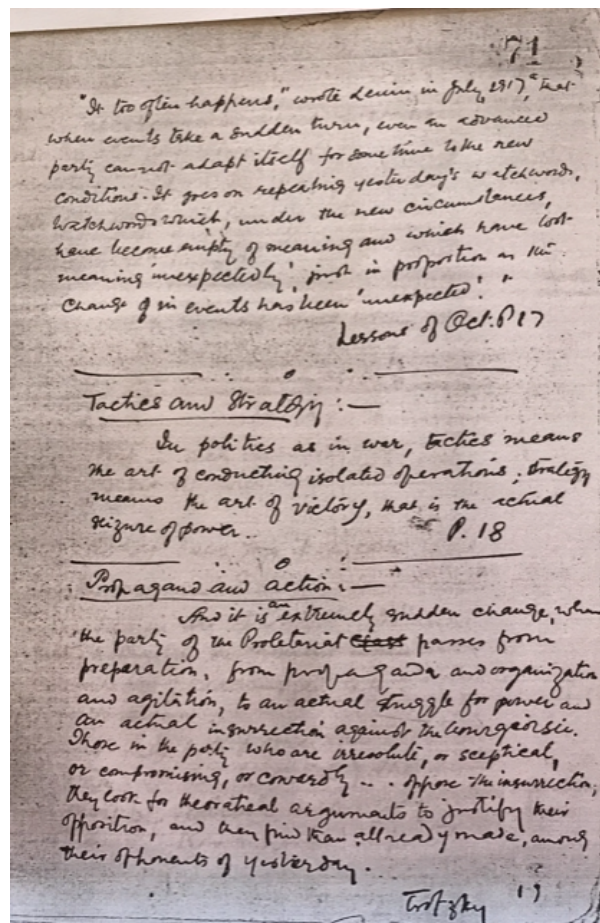 71
"It too often happens," wrote Lenin in July, 1917, "that
when events take a sudden turn, even an advanced
party cannot adapt itself for some time to the new
conditions. It goes on repeating yesterday's watchwords,
watchwords which, under the new circumstances,
have become empty of meaning and which have lost
meaning 'unexpectedly', just in proportion as the
change of in events has been 'unexpected'."
Lessons of Oct. P 17
Tactics and Strategy :—
In politics as in war, tactics means
the art of conducting isolated operations; strategy
means the art of victory, that is the actual
seizure of power. P. 18
Propagand and action :—
And it is an extremely sudden change, when
the party of the Proletariat passes from
preparation, from propaganda and organization
and agitation, to an actual struggle for power and
an actual insurrection against the bourgeoisie.
Those in the party who are irresolute, or sceptical,
or compromising, or cowardly ... oppose the insurrection,
they look for theoratical arguments to justify their
opposition, and they find them all ready made, among
their opponents of yesterday.
Trotzky 19